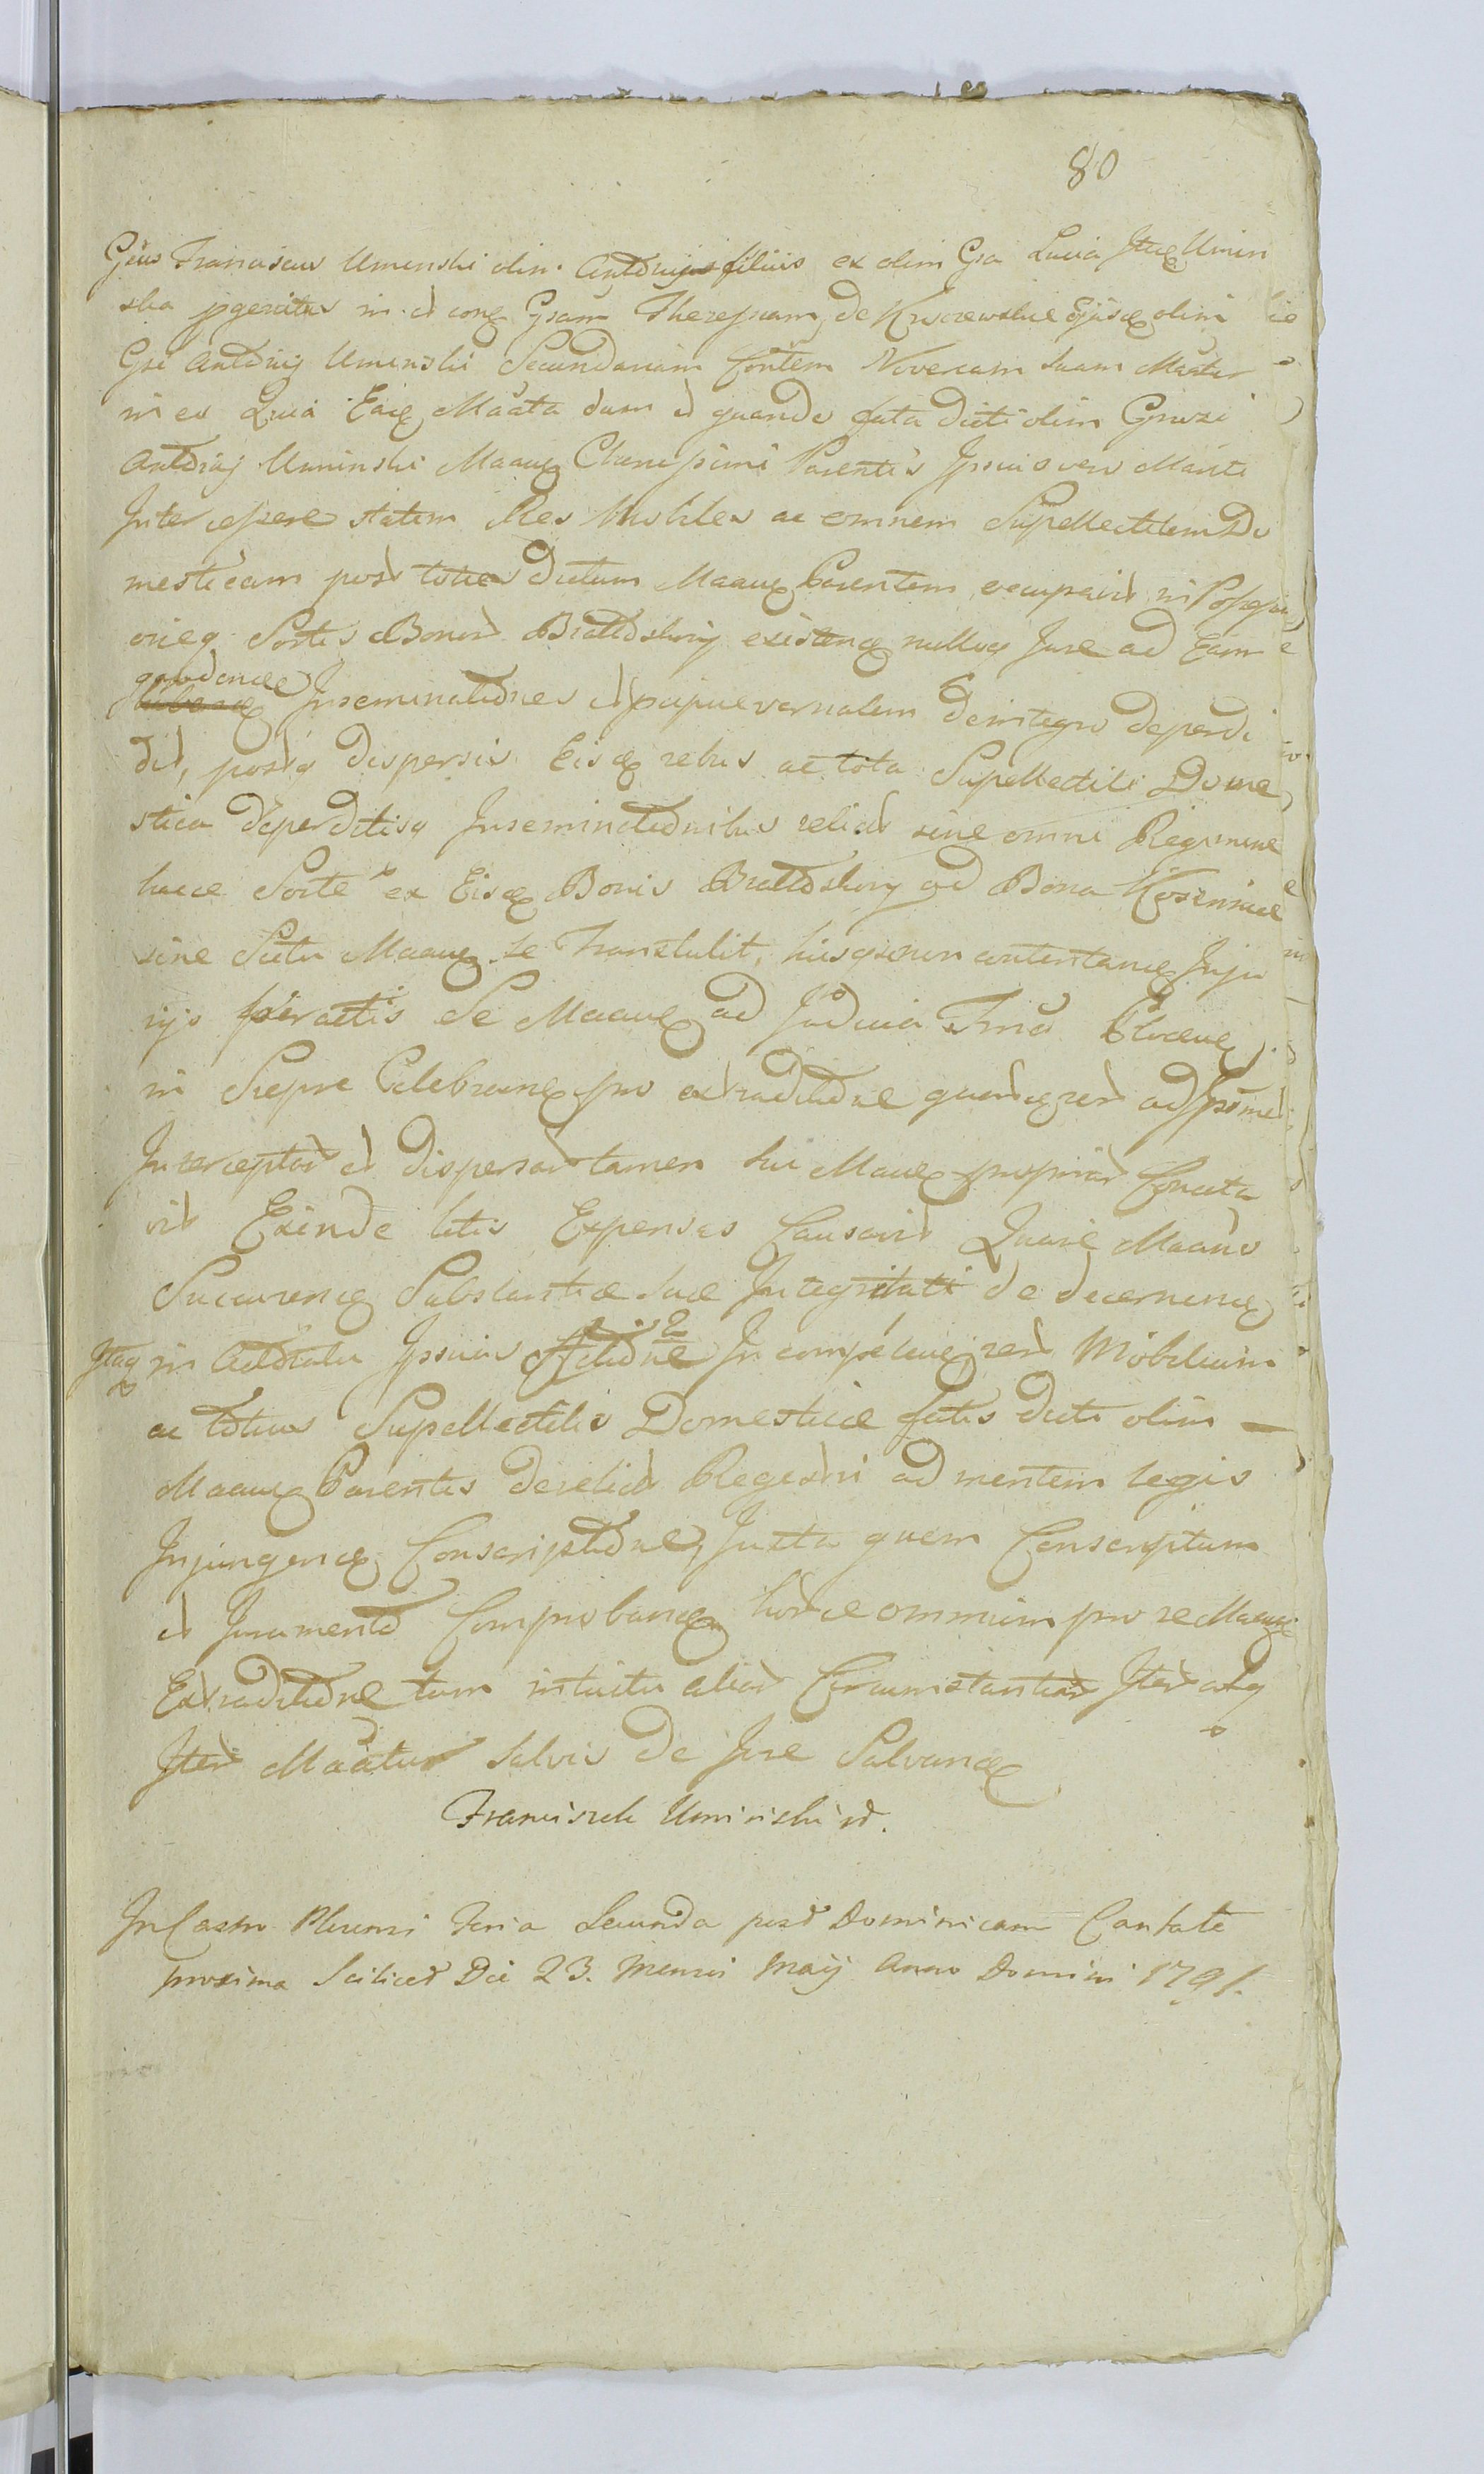 80
Gsus Franciscus Uminski olim Antonij filius ex olim Gsa Lucia Itaq Umin
ska pgenitus in et cong Gsam Theressam de Kurzewskie Ejusq olim
Gsi Antonij Uminski Secundariam Contem Novercam suam Mastur
in eo Quia Eaq Maata dum et quando fata dicti olim Gnrosi
Antonij Uminski Maang Charissimi Parentis Ipsius vero Mariti
Intercepere statim Res Mobiles ac omnem Supellectilem Do
mesticam post toties dictum Maang Parentem occupavit in Possess
orieq Sortis Bonor Bratoszewy existenq nulloq Jure ad Eam
gaudence
Inseminationes et pcipue vernalem deintegro deperdi
dit, postq dispersis Eisq rebus ac tota Supellectili Dome
stica deperditisq Inseminationibus relict sine omni Regimine
hacce Sorte ex Eisq Bonis Bratoszewy ad Bona Kosiniae
sine Scitu Maang se Transtulit, hisq non contentanq Inju
rijs peractis Se Maang ad Judicia Tria
in Sieprc Celebrang pro extraditione quarumq rer ad
Interceptar et dispersar tamen sui Maang propriar Concita
vit Exinde litis Expensas Causavit Quare Maans
Succurenq Substantiae suae Integritati de decernenq
Itaq in Actoratu Ipsius Actione 2 In compicieng rer Mobilium
ac totius Supellectilis Domesticae fatis dicti olim —
Maang Parentis derelict Regestri ad mentem legis
Injungenq Conscriptione, Juxta quem Conscriptum
et Juramento Comprobanq horce omnium pro re Maang
Extraditione tum intuitu aliar Circumstantiar Iter atq
Iter Maatur Salvis de Jure Salvanq
Franciszek Uminski
In Castro Plumsi Feria Secunda post Dominicam Cantate
proxima Scilicet Die 23. Mensis Maij Anno Domini 1791.